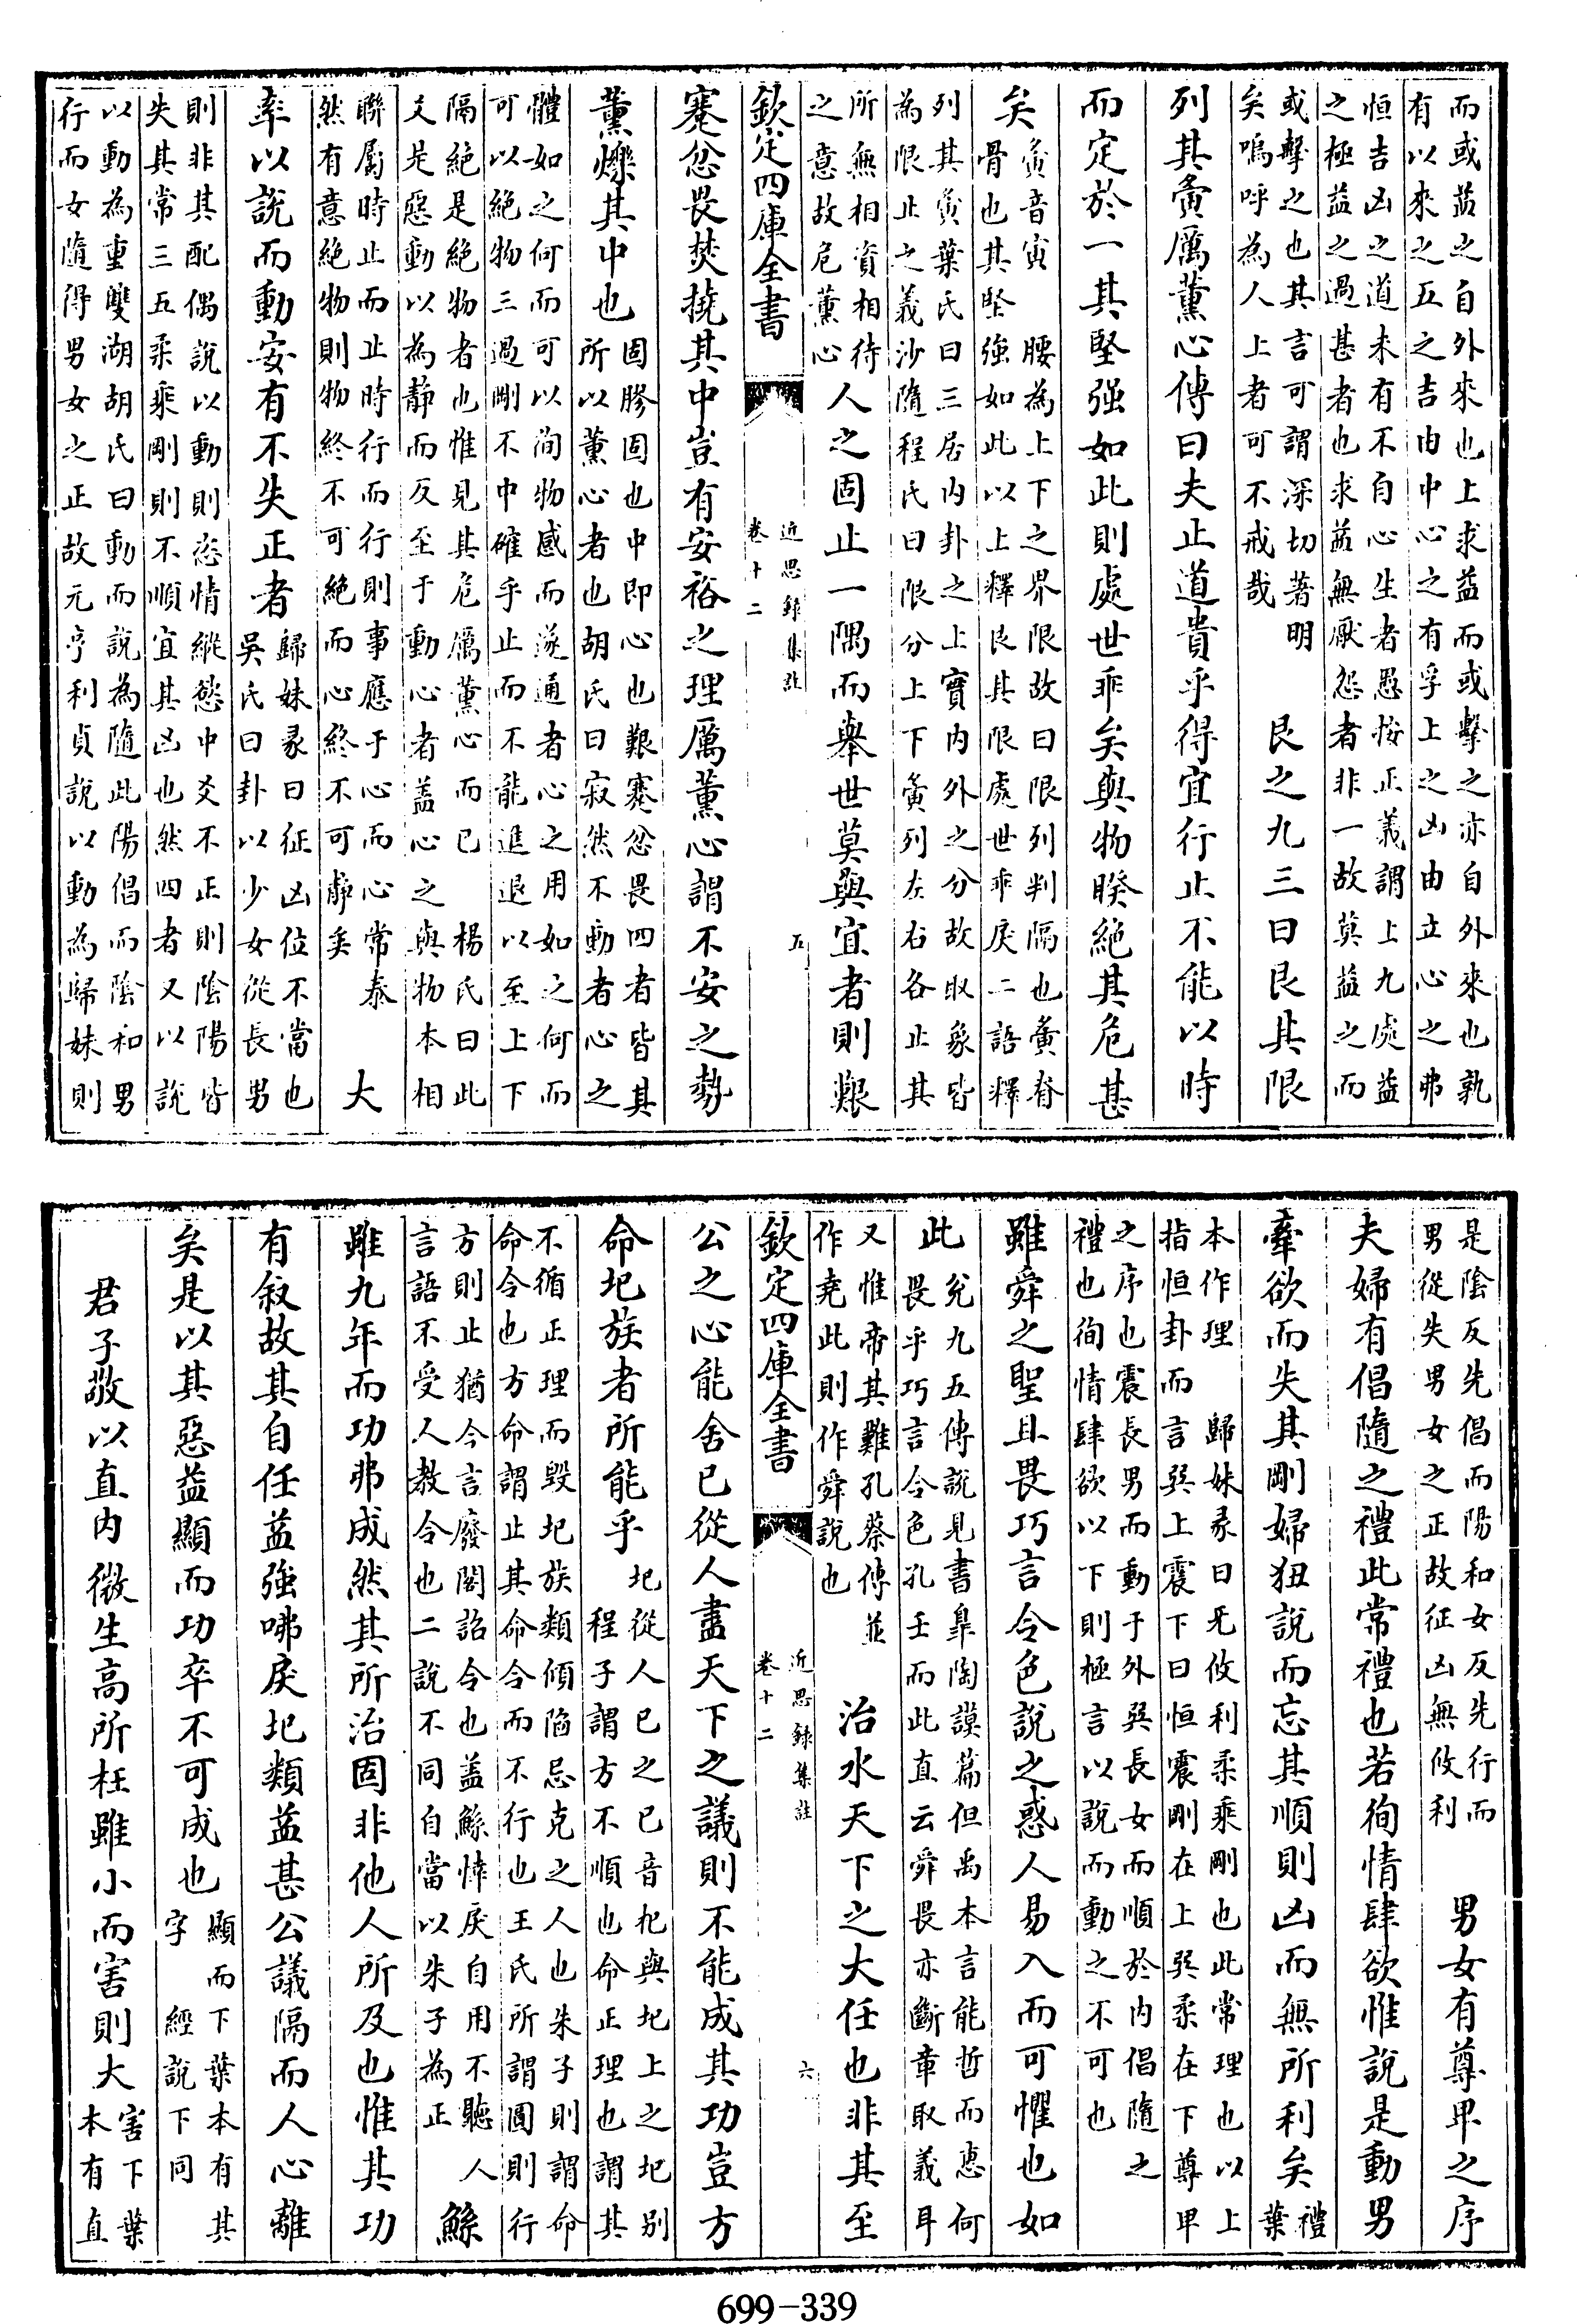 而或益之自外來也上求益而或擊之亦自外來也孰
有以來之五之吉由中心之有孚上之凶由立心之弗
恒吉凶之道未有不自心生者愚按正義謂上九處益
之極益之過甚者也求益無厭怨者非一故莫益之而
或擊之也其言可謂深切著明
矣嗚呼為人上者可不戒哉
艮之九三曰艮其限
列其夤厲薰心傳曰夫止道貴乎得宜行止不能以時
而定於一其堅强如此則處世乖矣與物睽絶其危甚
矣
夤音寅　腰為上下之界限故曰限列判隔也夤脊
骨也其堅強如此以上釋艮其限處世乖戾二語釋
列其夤葉氏曰三居内卦之上實内外之分故取象皆
為限止之義沙隨程氏曰限分上下夤列左右各止其
所無相資相待
之意故危薰心
人之固止一隅而舉世莫與宜者則艱
欽定四庫全書
近思録集註
卷十二
五
蹇忿畏焚撓其中豈有安裕之理厲薰心謂不安之勢
薰爍其中也
固膠固也中即心也艱蹇忿畏四者皆其
所以薰心者也胡氏曰寂然不動者心之
體如之何而可以徇物感而遂通者心之用如之何而
可以絶物三過剛不中確乎止而不能進退以至上下
隔絶是絶物者也惟見其危厲薰心而已　楊氏曰此
爻是惡動以為静而反至于動心者盖心之與物本相
聯屬時止而止時行而行則事應于心而心常泰
然有意絶物則物終不可絶而心終不可静矣
大
率以說而動安有不失正者
歸妹彖曰征凶位不當也
吳氏曰卦以少女從長男
則非其配偶說以動則恣情縱慾中爻不正則陰陽皆
失其常三五柔乘剛則不順宜其凶也然四者又以說
以動為重雙湖胡氏曰動而說為隨此陽倡而陰和男
行而女隨得男女之正故元亨利貞說以動為歸妹則
是陰反先倡而陽和女反先行而
男從失男女之正故征凶無攸利
男女有尊卑之序
夫婦有倡隨之禮此常禮也若徇情肆欲惟說是動男
牽欲而失其剛婦狃說而忘其順則凶而無所利矣
禮
葉
本作理　歸妹彖曰无攸利柔乘剛也此常理也以上
指恒卦而言巽上震下曰恒震剛在上巽柔在下尊卑
之序也震長男而動于外巽長女而順於内倡隨之
禮也徇情肆欲以下則極言以說而動之不可也
雖舜之聖且畏巧言令色說之惑人易入而可懼也如
此
兊九五傳說見書臯陶謨篇但禹本言能哲而惠何
畏乎巧言令色孔壬而此直云舜畏亦斷章取義耳
又惟帝其難孔蔡傳並
作堯此則作舜說也
治水天下之大任也非其至
欽定四庫全書
近思録集註
卷十二
六
公之心能舍已從人盡天下之議則不能成其功豈方
命圮族者所能乎
圮從人已之已音杞與圮上之圮别
程子謂方不順也命正理也謂其
不循正理而毀圮族類傾陷忌克之人也朱子則謂命
命令也方命謂止其命令而不行也王氏所謂圓則行
方則止猶今言廢閣詔令也盖鯀悻戾自用不聽人
言語不受人教令也二說不同自當以朱子為正
鯀
雖九年而功弗成然其所治固非他人所及也惟其功
有叙故其自任益強咈戾圮類益甚公議隔而人心離
矣是以其惡益顯而功卒不可成也
顯而下葉本有其
字　經說下同
君子敬以直内微生高所枉雖小而害則大
害下葉
本有直
699-339